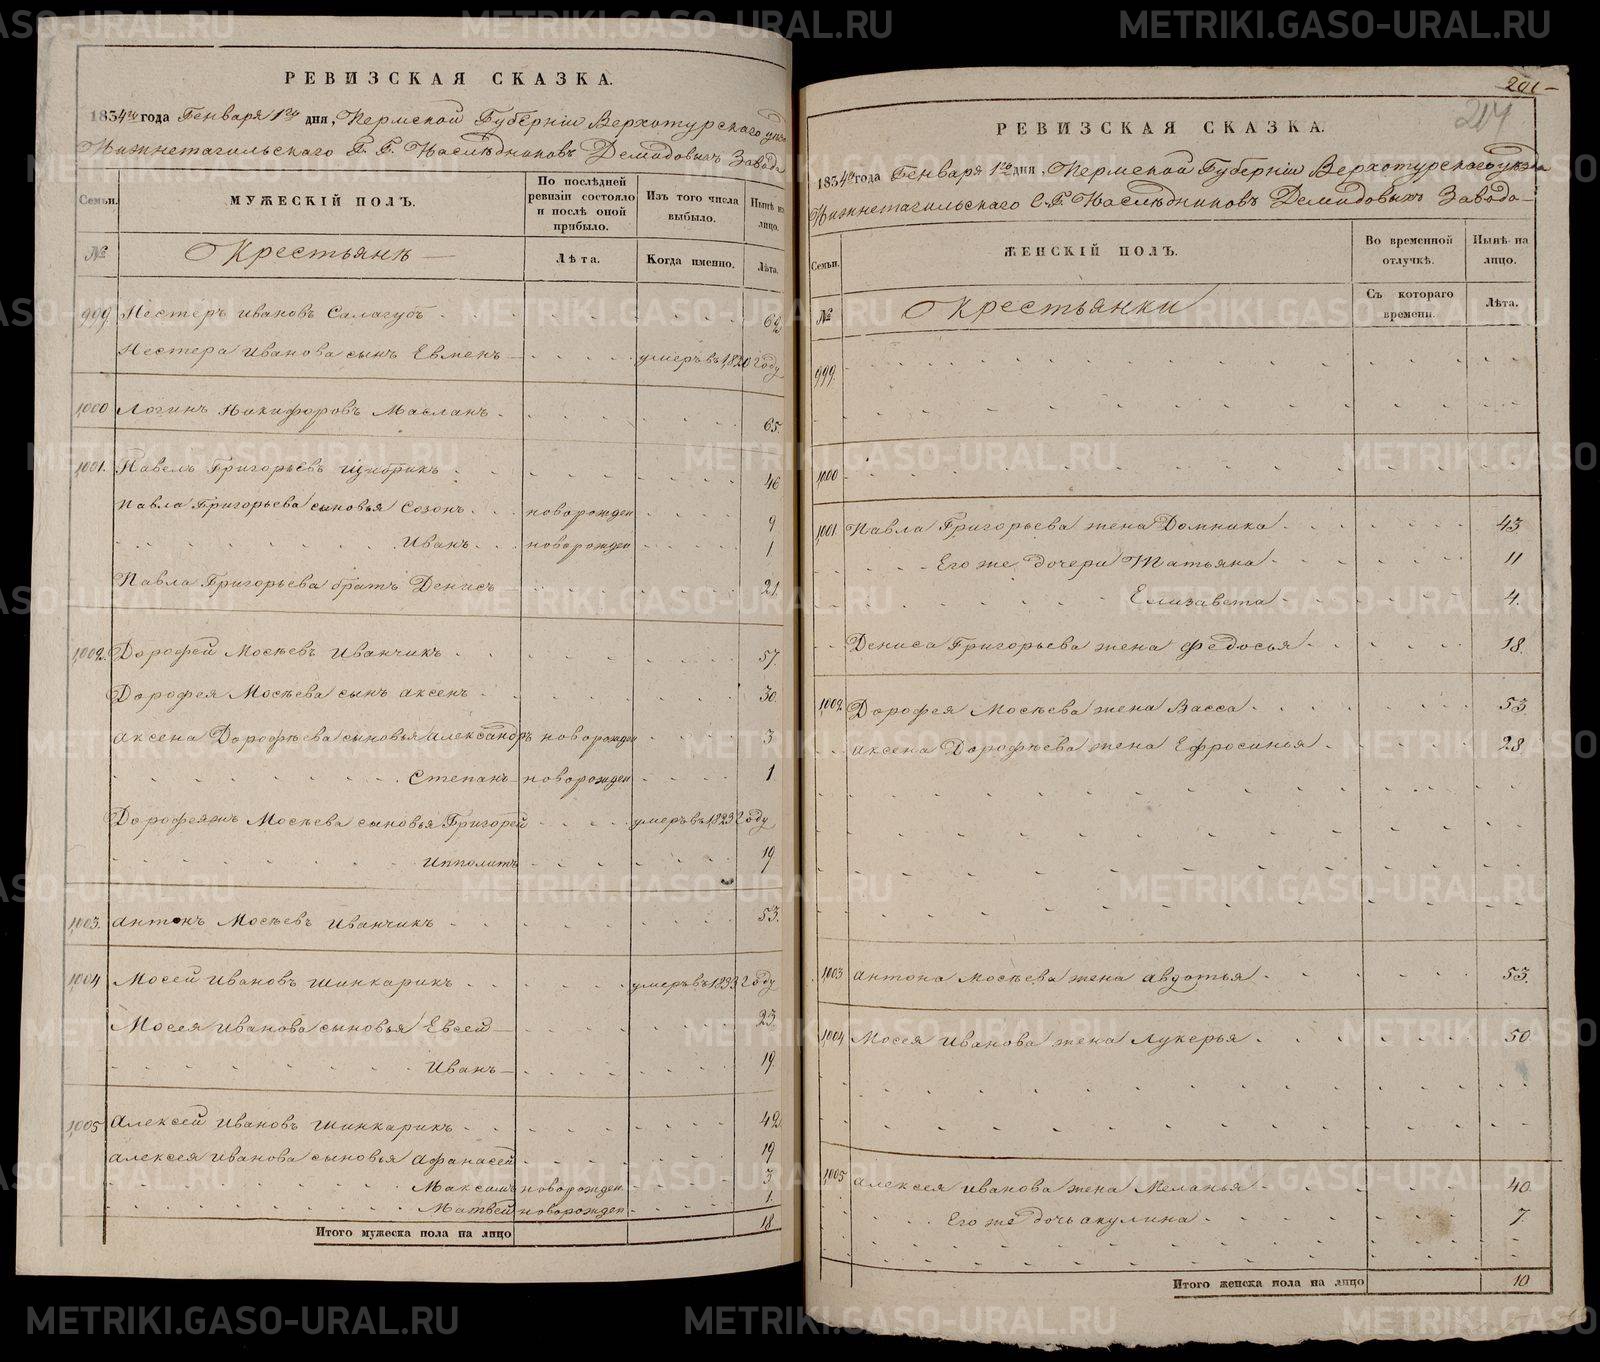 РЕВИЗСКАЯ СКАЗКА.
1834го года Генваря 1го дня, Пермской Губерніи Верхотурскаго уезда
Нижнетагильскаго Г. Г. Наслѣдниковъ Демидовыхъ Завода
Семьи. МУЖЕСКІЙ ПОЛЪ. По послѣдней ревизіи состояло и послѣ оной прибыло. Изъ того числа выбыло. Нынѣ на лицо.
№ Крестьянѣ Лѣта. Когда именно. Лѣта.
999. Нестеръ Ивановъ Салагубъ 62
Нестера Иванова сынъ Евменъ умеръ въ 1820 году
1000 Логинъ Никифоровъ Масланъ 65.
1001. Павелъ Григорьевъ Щибрикъ 46
Павла Григорьева сыновья Созонъ новорожден 9
Иванъ новорожден 1
Павла Григорьева братъ Денисъ 21.
1002. Дорофей Мосѣевъ Иванчикъ 57
Дорофея Мосѣева сынъ Аксенъ 30.
Аксена Дорофѣева сыновья Александръ новорожден 3
Степанъ новорожден 1
Дорофеяжъ Мосѣева сыновья Григорей умеръ въ 1823 году
Ипполитъ 19
1003. Антонъ Мосѣевъ Иванчикъ 53.
1004 Мосей Ивановъ Шинкарикъ умеръ въ 1833 году
Мосея Иванова сыновья Евсей 23.
Иванъ 19.
1005 Алексей Ивановъ Шинкарикъ 42
Алексея Иванова сыновья Афанасей 19
Максимъ новорожден 3
Матвей новорожден 1.
Итого мужеска пола на лицо 18
201
214
РЕВИЗСКАЯ СКАЗКА.
1834го года Генваря 1го дня, Пермской Губерніи Верхотурскаго уезда
Нижнетагильскаго Г. Г. Наслѣдниковъ Демидовыхъ Завода
Семьи. ЖЕНСКІЙ ПОЛЪ. Во временной отлучкѣ. Нынѣ на лицо.
№ Крестьянки Съ котораго времени. Лѣта.
999.
1000
1001. Павла Григорьева жена Домника 43
Его же дочери Татьяна 11
Елизавета 4.
Дениса Григорьева жена Федосья 18.
1002. Дорофея Мосѣева жена Васса 53
Аксена Дорофѣева жена Ефросинья 28
1003 Антона Мосѣева жена Авдотья 53.
1004 Мосея Иванова жена Лукерья 50
1005 Алексея Иванова жена Меланья 40
Его же дочь Акулина 7.
Итого женска пола на лицо 10
METRIKI.GASO-URAL.RU